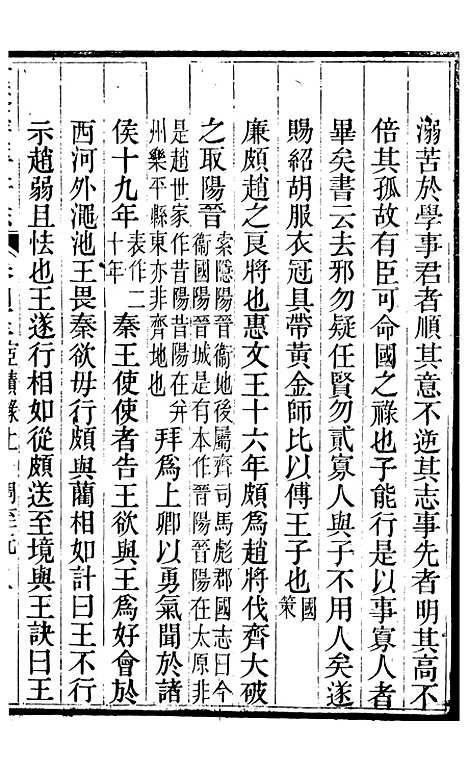 溺苦於學事君者順其意不逆其志事先者明其高不
倍其孤故有臣可命國之祿也子能行是以事寡人者
畢矣書云去邪勿疑任賢勿貳寡人與子不用人矣遂
賜紹胡服衣冠具帶黃金師比以傅王子也國策
廉頗趙之良將也惠文王十六年頗爲趙將伐齊大破
之取陽晉索隱陽晉衞地後屬齊司馬彪郡國志曰今
衞國陽晉城是有本作晉陽晉陽在太原非
是趙世家作昔陽昔陽在幷
州樂平縣東亦非齊地也拜爲上卿以勇氣聞於諸
侯十九年表作二十年秦王使使者告王欲與王爲好會於
西河外澠池王畏秦欲毋行頗與藺相如計曰王不行
示趙弱且怯也王遂行相如從頗送至境與王訣曰王